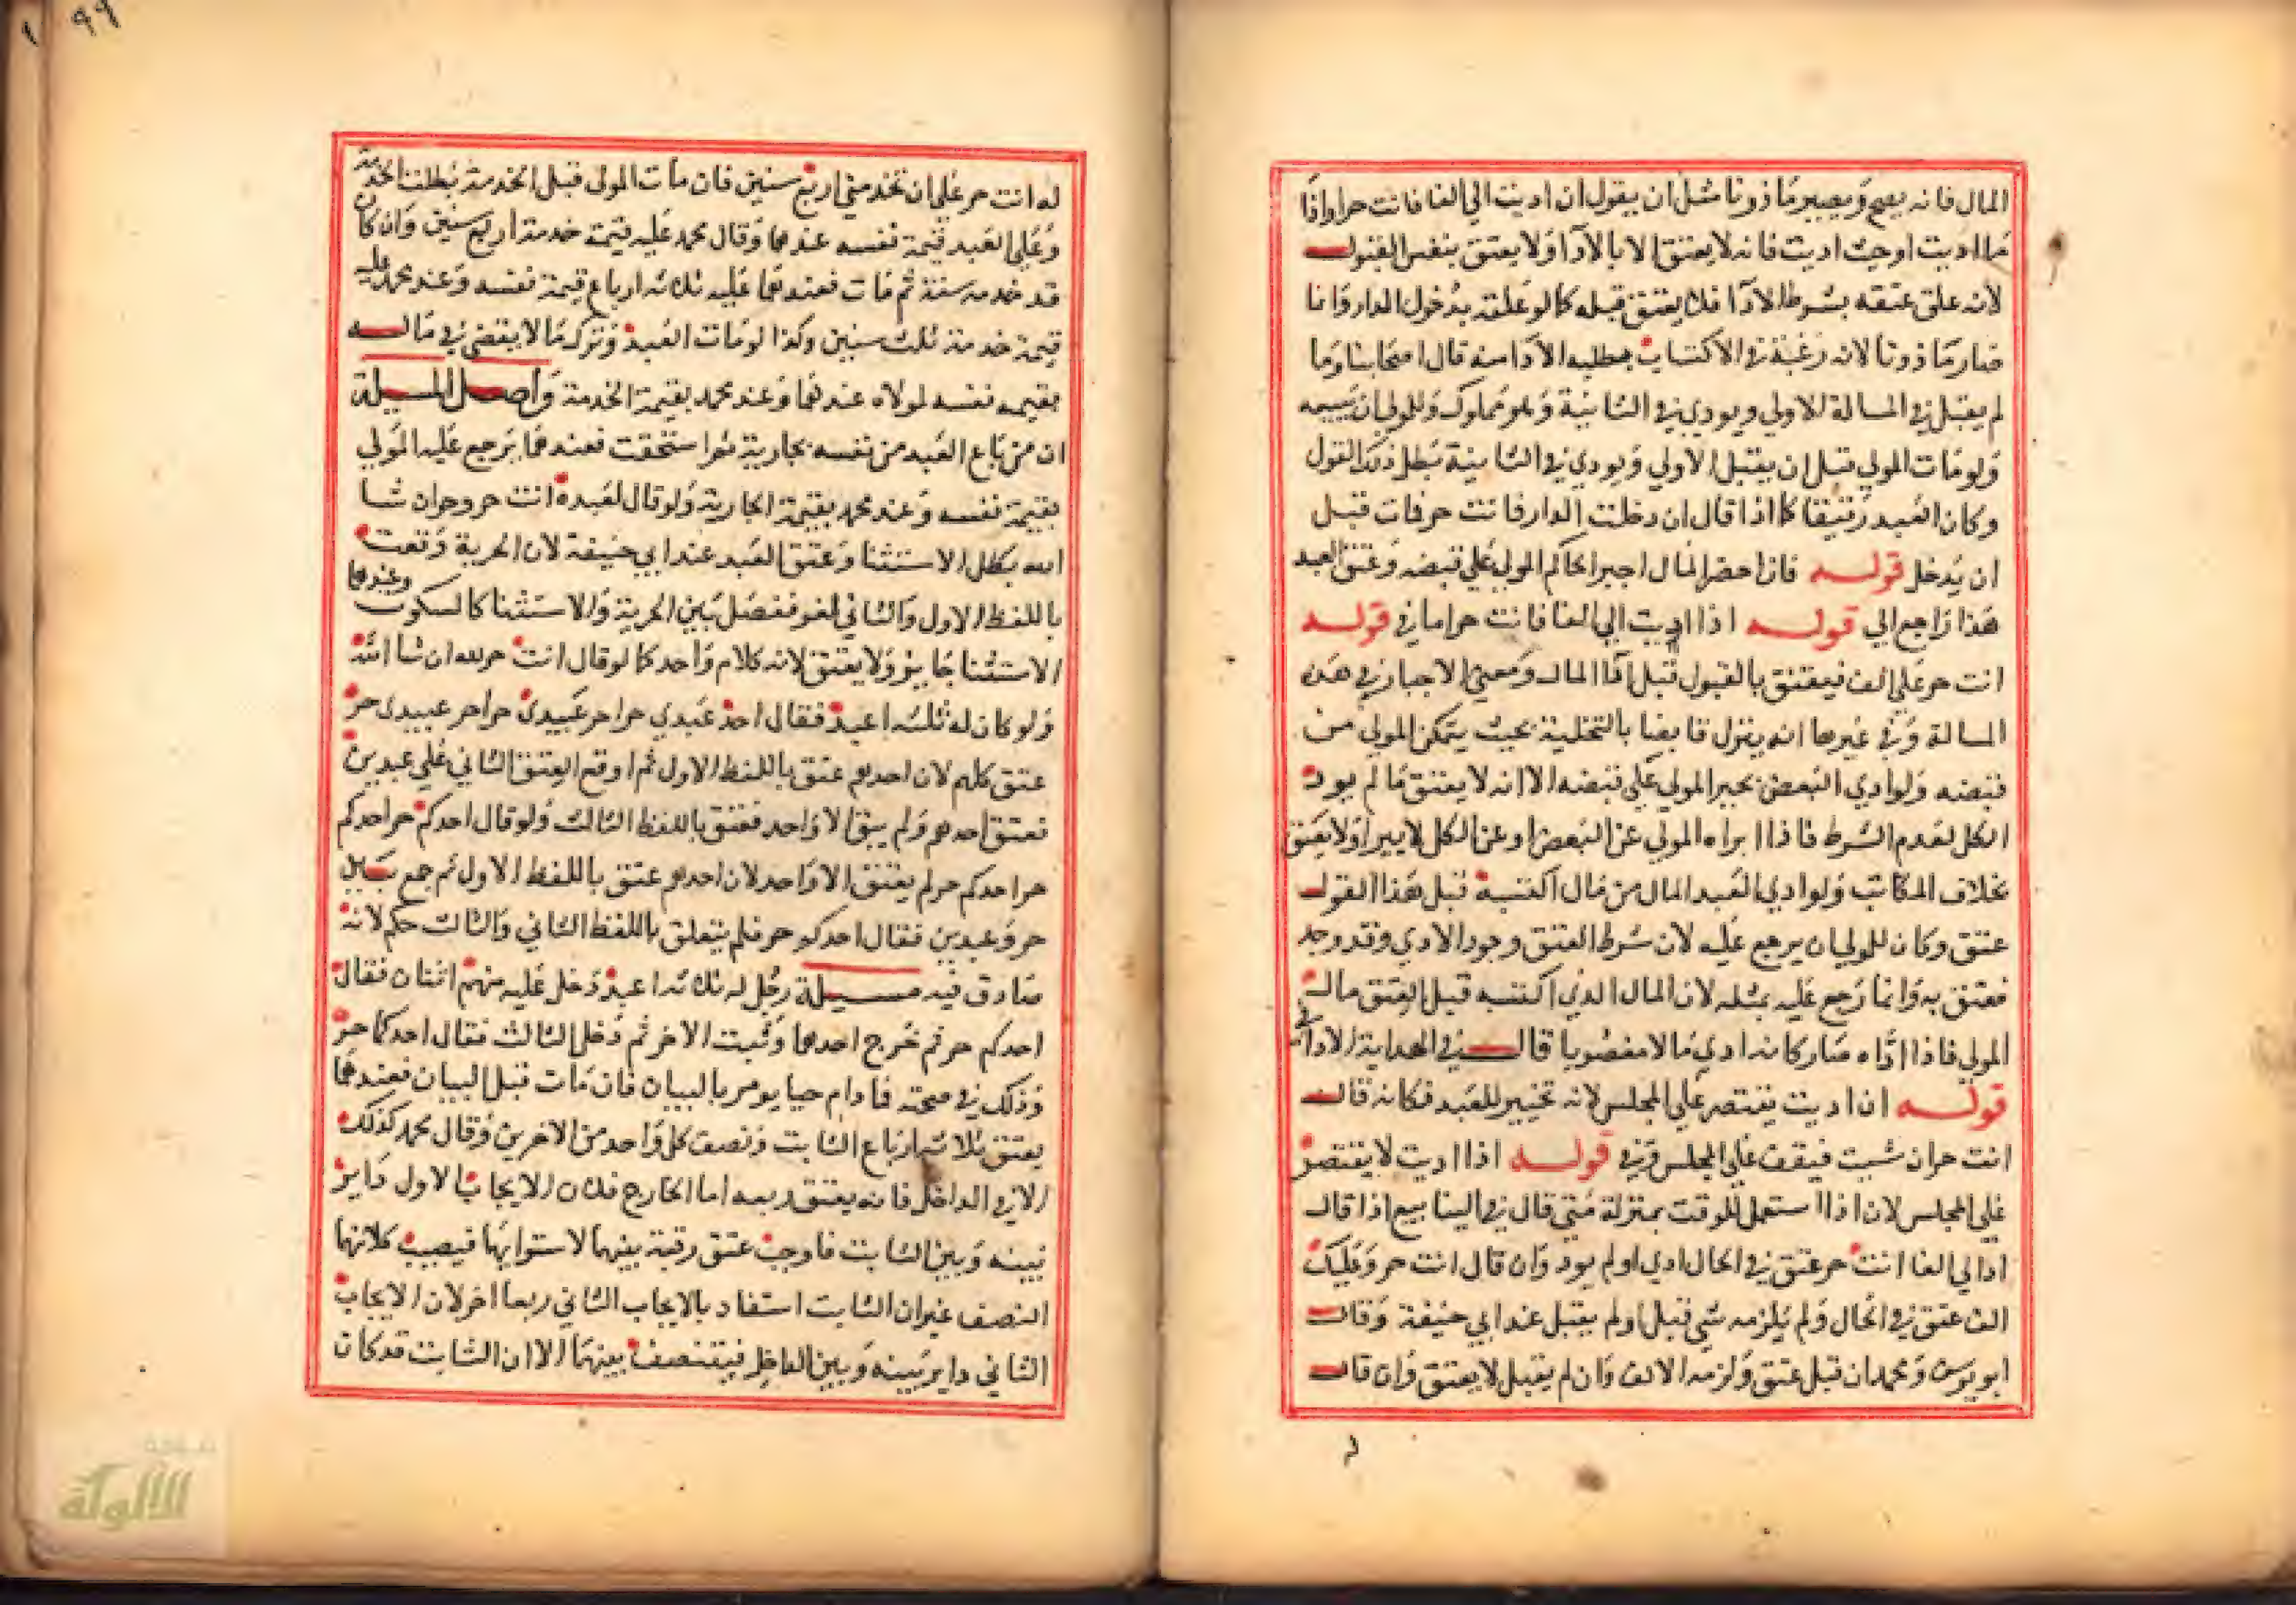 المال فانه يصح ويصير ماذونا مثل ان يقول ان اديت الي الفا فانت حر او اذا
ما اديت او حيث اديت فانه لا يعتق الا بالادا ولا يعتق بنفس القبول
لانه علق عتقه بشرط الادا فلا يعتق قبله كما لو علقه بدخول الدار وانما
صار ماذونا لانه رغبه في الاكتساب بطلبه الادا منه قال اصحابنا وما
لم يقبل في المسالة الاولي ويودي في الثانية وهو مملوك وللولي ان يبيعه
ولو مات المولي قبل ان يقبل الاولي ويودي في الثانية بطل ذلك القول
وكان العبد رقيقا كما اذا قال ان دخلت الدار فانت حر فمات قبل
ان يدخل قوله فاذا احضر المال اجبر الحاكم المولي علي قبضه وعتق العبد
هذا راجع الي قوله اذا اديت الي الفا فانت حر اما في قوله
انت حر علي الف فيعتق بالقبول قبل ادا المال ومعني الاجبار في هذه
المسالة وفي غيرها انه ينزل قابضا بالتخلية بحيث يتمكن المولي من
قبضه ولو ادي البعض يجبر المولي علي قبضه الا انه لا يعتق ما لم يود
الكل لعدم الشرط فاذا ابراه المولي عن البعض او عن الكل لا يبرا ولا يعتق
بخلاف المكاتب ولو ادي العبد المال من مال اكتسبه قبل هذا القول
عتق وكان للولي ان يرجع عليه لان شرط العتق وجود الادي وقد وجد
فعتق به وانما رجع عليه بمثله لان المال الذي اكتسبه قبل العتق مال
المولي فاذا اداه صار كانه ادي مالا مغصوبا قال في الهداية الادا في
قوله ان اديت يقتصر علي المجلس لانه تخيير للعبد فكانه قال
انت حر ان شيت فيقف علي المجلس وفي قوله اذا اديت لا يقتصر
علي المجلس لان اذا استعمل للوقت بمنزلة متي قال في الينابيع اذا قال
اد الي الفا انت حر عتق في الحال ادي او لم يود وان قال انت حر وعليك
الف عتق في الحال ولم يلزمه شي قبل او لم يقبل عند ابي حنيفة وقال
ابو يوسف ومحمد ان قبل عتق ولزمه الالف وان لم يقبل لا يعتق وان قال
له انت حر علي ان تخدمني اربع سنين فان مات المولي قبل الخدمة بطلت الخدمة
وعلي العبد قيمة نفسه عندهما وقال محمد عليه قيمة خدمة اربع سنين وان كان
قد خدمه سنة ثم مات فعندهما عليه ثلاثه ارباع قيمة نفسه وعند محمد عليه
قيمة خدمة ثلث سنين وكذا لو مات العبد وترك مالا يقضي في ماله
بقيمه نفسه لمولاه عندهما وعند محمد بقيمة الخدمة واصل المسيلة
ان من باع العبد من نفسه بجارية ثم استحقت فعندهما يرجع عليه المولي
بقيمة نفسه وعند محمد بقيمة الجارية ولو قال لعبده انت حر وحر ان شا
الله بطل الاستثنا وعتق العبد عند ابي حنيفة لان الحرية وقعت
باللفظ الاول والثاني لغو ففصل بين الحرية والاستثنا كالسكوت وعندهما
الاستثنا جايز ولا يعتق لانه كلام واحد كما لو قال انت حر لله ان شا الله
ولو كان له ثلثه اعبد فقال احد عبدي حر احد عبيدي حر احد عبيدي حر
عتق كلهم لان احدهم عتق باللفظ الاول ثم اوقع العتق الثاني علي عبدين
فعتق احدهم ولم يبق الا واحد فعتق باللفظ الثالث ولو قال احدكم حر احدكم
حر احدكم حر لم يعتق الا واحد لان احدهم عتق باللفظ الاول ثم جمع بين
حر وعبدين فقال احدكم حر فلم يتعلق باللفظ الثاني والثالث حكم لانه
صادق فيه مسيلة رجل له ثلاثه اعبد دخل عليه منهم اثنان فقال
احدكم حر ثم خرج احدهما وثبت الاخر ثم دخل الثالث فقال احدكما حر
وذلك في صحته فما دام حيا يومر بالبيان فان مات قبل البيان فعندهما
يعتق ثلاثه ارباع الثابت ونصف كل واحد من الاخرين وقال محمد كذلك
الا في الداخل فانه يعتق ربعه اما الخارج فلان الايجاب الاول داير
بينه وبين الثابت فاوجب عتق رقبة بينهما لاستوايهما فيصيب كلا منهما
النصف غير ان الثابت استفاد بالايجاب الثاني ربعا اخر لان الايجاب
الثاني داير بينه وبين الداخل فيتنصف بينهما الا ان الثابت قد كان
الألوكة